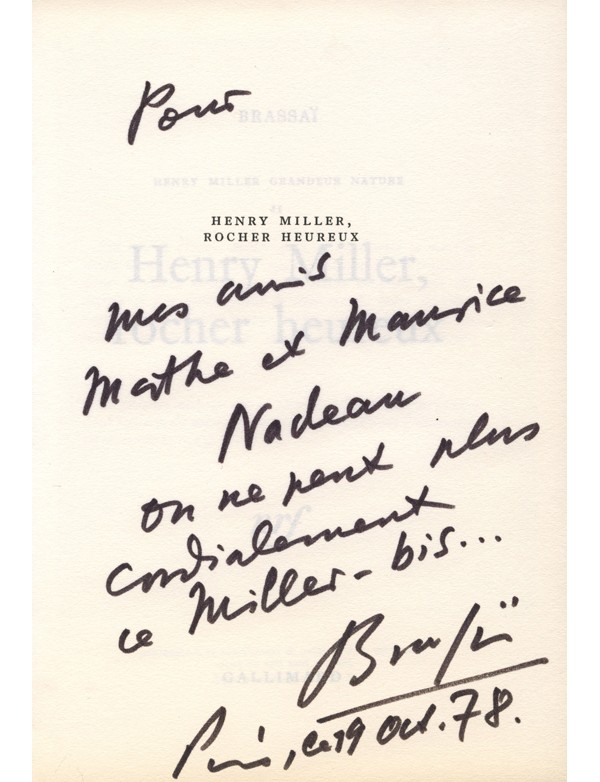 Pour
BRASSAÏ
HENRY MILLER GRANDEUR NATURE
**
HENRY MILLER,
ROCHER HEUREUX
Henry Miller,
rocher heureux
mes amis
Mathe et Maurice
Nadeau
on ne peut plus
cordialement
ce Miller-bis...
nrf
Brassaï
GALLIMARD
Paris, ce 19 Oct. 78.